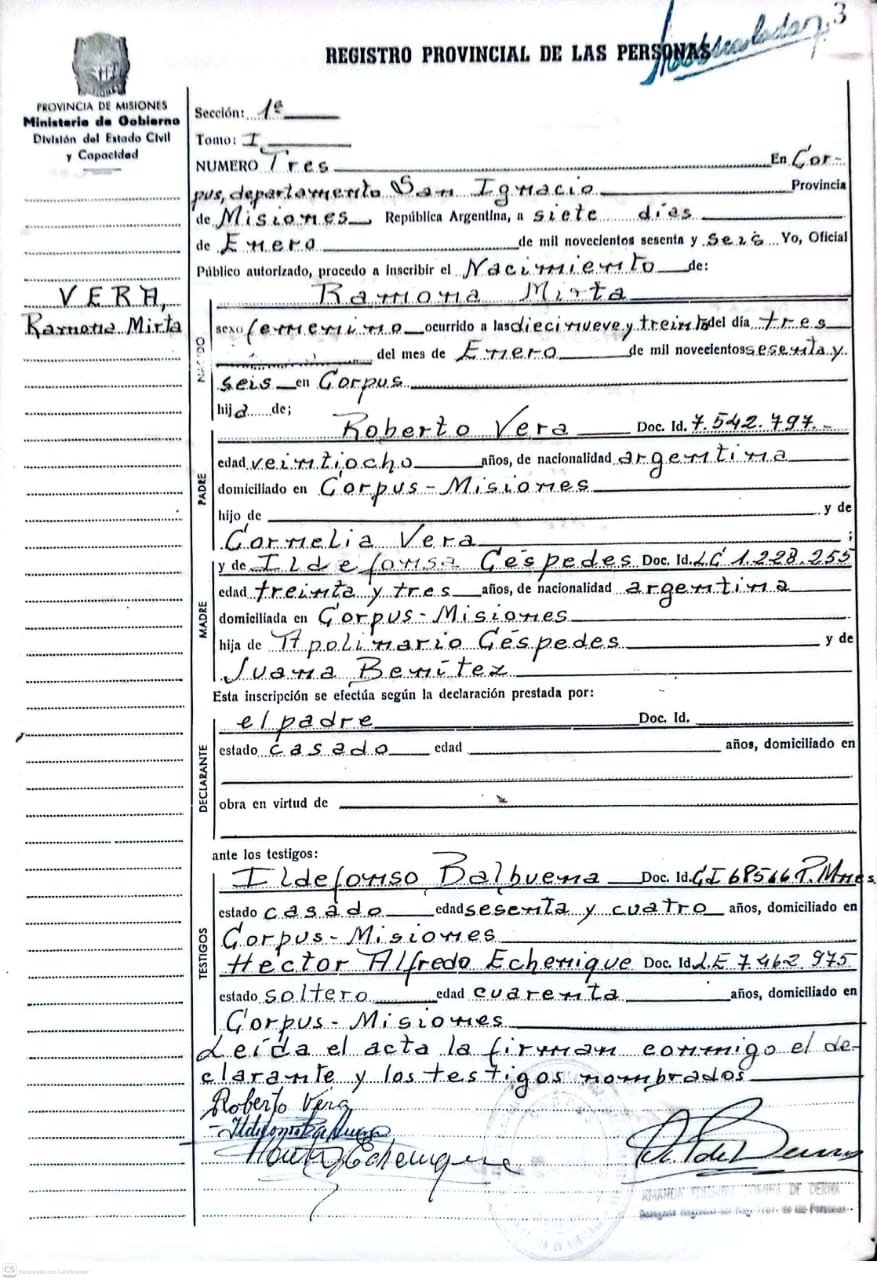 3
REGISTRO PROVINCIAL DE LAS PERSONAS
PROVINCIA DE MISIONES
Ministerio de Gobierno
División del Estado Civil
y Capacidad
VERA,
Ramona Mirta
Sección: 1ª
Tomo: I
NUMERO Tres En Cor-
pus, departamento San Ignacio Provincia
de Misiones República Argentina, a siete días
de Enero de mil novecientos sesenta y seis Yo, Oficial
Público autorizado, procedo a inscribir el Nacimiento de:
Ramona Mirta
NACIDO
sexo femenino ocurrido a las diecinueve y treinta del día tres
del mes de Enero de mil novecientos sesenta y
seis en Corpus
hija de;
Roberto Vera Doc. Id. 7.542.797.-
PADRE
edad veintiocho años, de nacionalidad argentina
domiciliado en Corpus-Misiones
hijo de y de
Cornelia Vera ;
y de Ildefonsa Céspedes Doc. Id. LC 1.228.255
MADRE
edad treinta y tres años, de nacionalidad argentina
domiciliada en Corpus-Misiones
hija de Apolinario Céspedes y de
Juana Benítez
Esta inscripción se efectúa según la declaración prestada por:
el padre Doc. Id.
DECLARANTE
estado casado edad años, domiciliado en
obra en virtud de
ante los testigos:
Ildefonso Balbuena Doc. Id. CI 68566 P. Mnes
TESTIGOS
estado casado edad sesenta y cuatro años, domiciliado en
Corpus-Misiones
Hector Alfredo Echenique Doc. Id. L.E 7.462.975
estado soltero edad cuarenta años, domiciliado en
Corpus-Misiones
Leída el acta la firman conmigo el de-
clarante y los testigos nombrados
Roberto Vera
Ildefonso Balbuena
Echenique
AMANDA DE DERNA
Delegada Reg. Prov. de las Personas
CS Escaneado con CamScanner